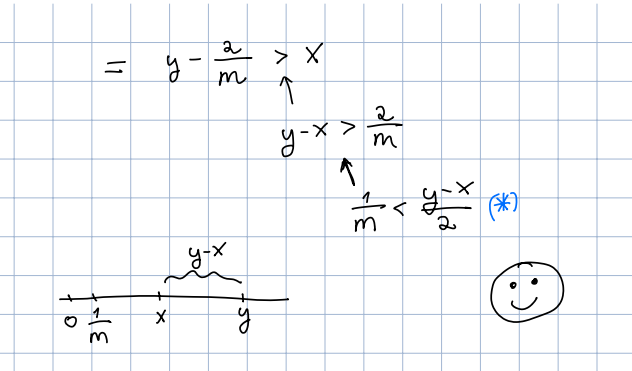 = y - 2/m > x
y-x > 2/m
1/m < y-x/2 (*)
y-x
0 1/m x y